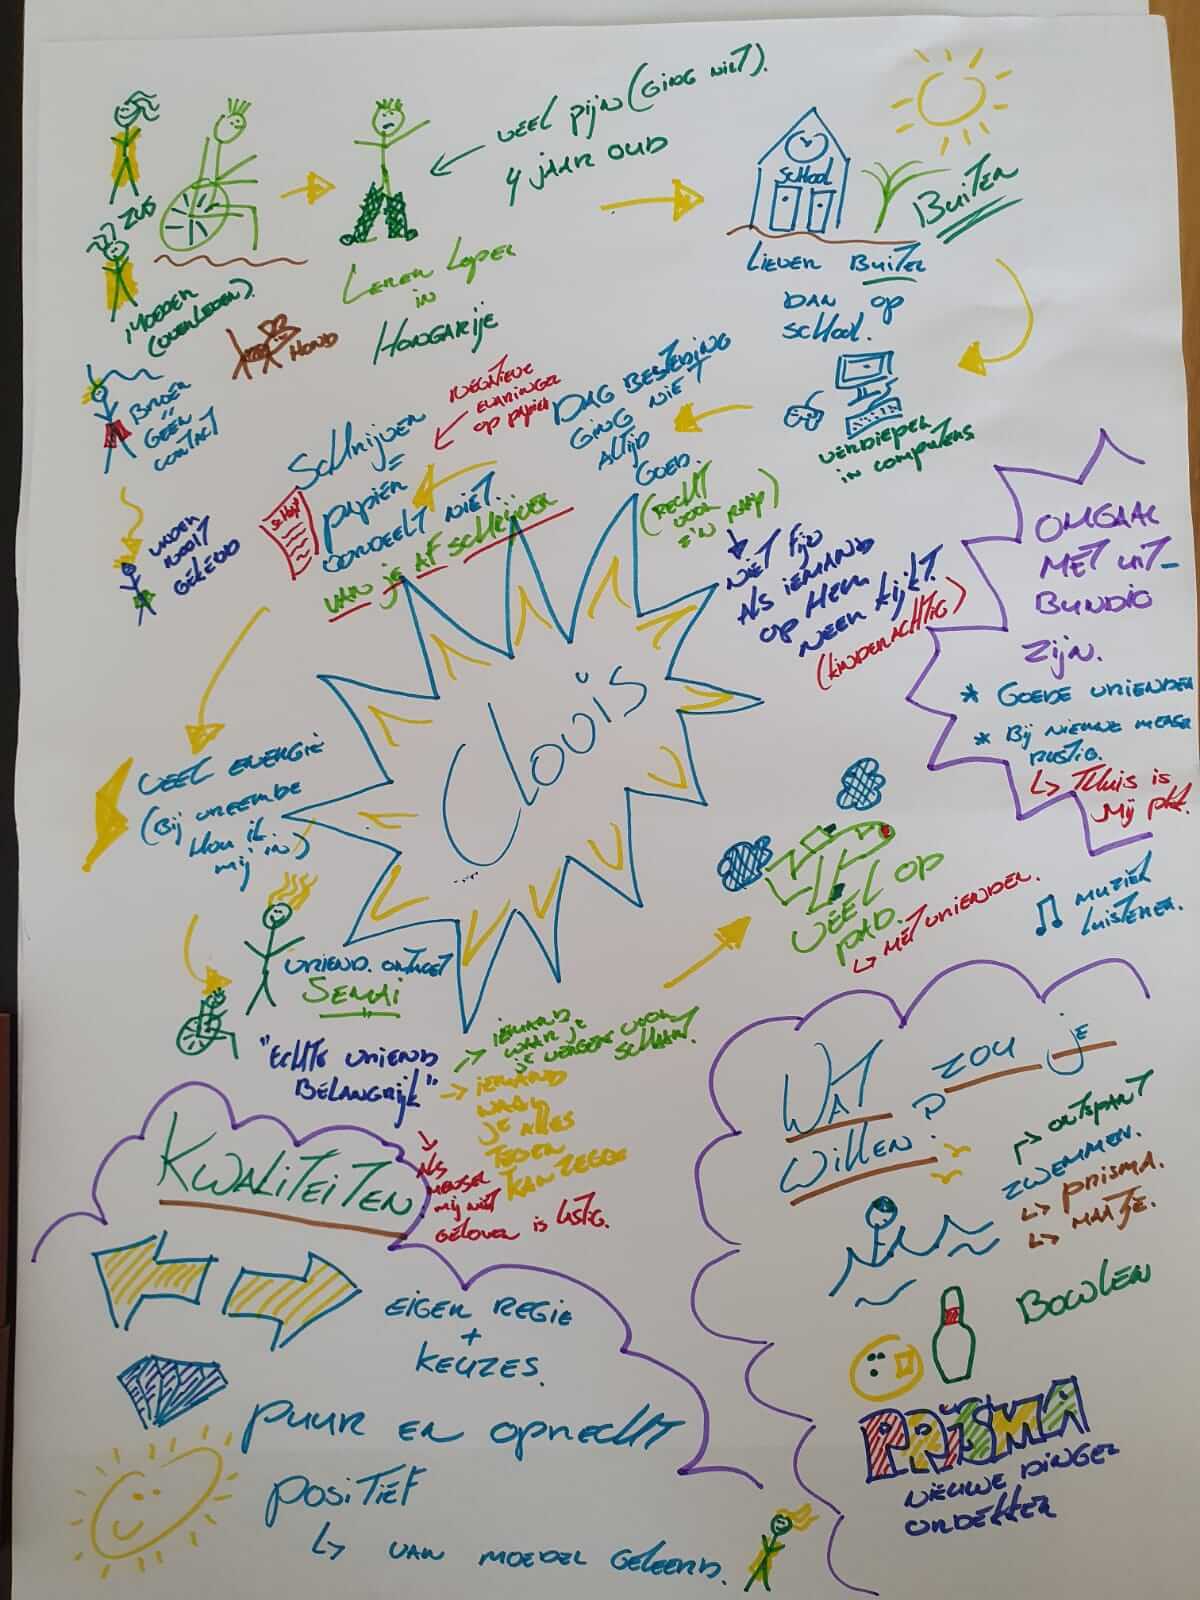 ZUS
MOEDER
(OVERLEDEN).
HOND
BROER
=
GEEN
CONTACT
VADER
NOOIT
GELEERD
LEREN LOPEN
IN
HONGARIJE
VEEL PIJN (GING NIET).
4 JAAR OUD
SCHOOL
BUITEN
LIEVER BUITEN
DAN OP
SCHOOL.
VERDIEPEN
IN COMPUTERS
DAG BESTEDING
GING NIET
ALTIJD
GOED.
(RECHT
VOOR
Z'N RAAP)
NIET FIJN
ALS IEMAND
OP HEM
NEER KIJKT.
(KINDERACHTIG)
NEGATIEVE
ERVARINGEN
OP PAPIER
SCHRIJVEN
=
PAPIER
OORDEELT NIET.
VAN JE AF SCHRIJVEN
OMGAAN
MET UIT-
BUNDIG
ZIJN.
* GOEDE VRIENDEN
* BIJ NIEUWE MENSEN
RUSTIG.
↳ THUIS IS
MIJ PLEK.
Clovis
VEEL ENERGIE
(BIJ VREEMDE
HOU IK
MIJ IN)
VRIEND. ONTMOET
"ECHTE VRIEND
BELANGRIJK"
→ IEMAND
WAAR JE
JE NERGENS VOOR
SCHAAMT.
→ IEMAND
WAAR
JE ALLES
TEGEN
KAN ZEGGEN
ALS
MENSEN
MIJ NIET
GELOVEN IS LASTIG.
VEEL OP
PAD.
↳ MET VRIENDEN.
MUZIEK
LUISTEREN.
KWALITEITEN
EIGEN REGIE
+
KEUZES.
PUUR EN OPRECHT
POSITIEF
↳ VAN MOEDER GELEERD.
WAT ZOU JE
WILLEN?
↱ ONTSPANT
ZWEMMEN.
↳ PRISMA.
↳ MAATJE.
BOWLEN
PRISMA
NIEUWE DINGEN
ONTDEKKEN